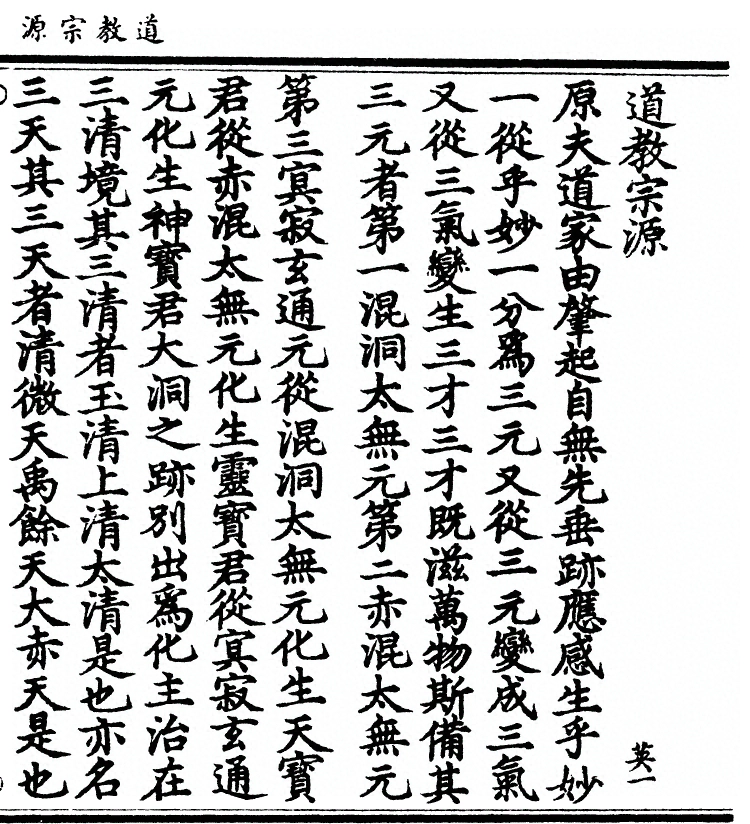 道教宗源
道教宗源 英一
原夫道家由肇起自無先垂跡應感生乎妙
一從乎妙一分爲三元又從三元變成三氣
又從三氣變生三才三才既滋萬物斯備其
三元者第一混洞太無元第二赤混太無元
第三冥寂玄通元從混洞太無元化生天寳
君從赤混太無元化生靈寳君從冥寂玄通
元化生神寳君大洞之跡別出爲化主治在
三清境其三清者玉清上清太清是也亦名
三天其三天者清微天禹餘天大赤天是也